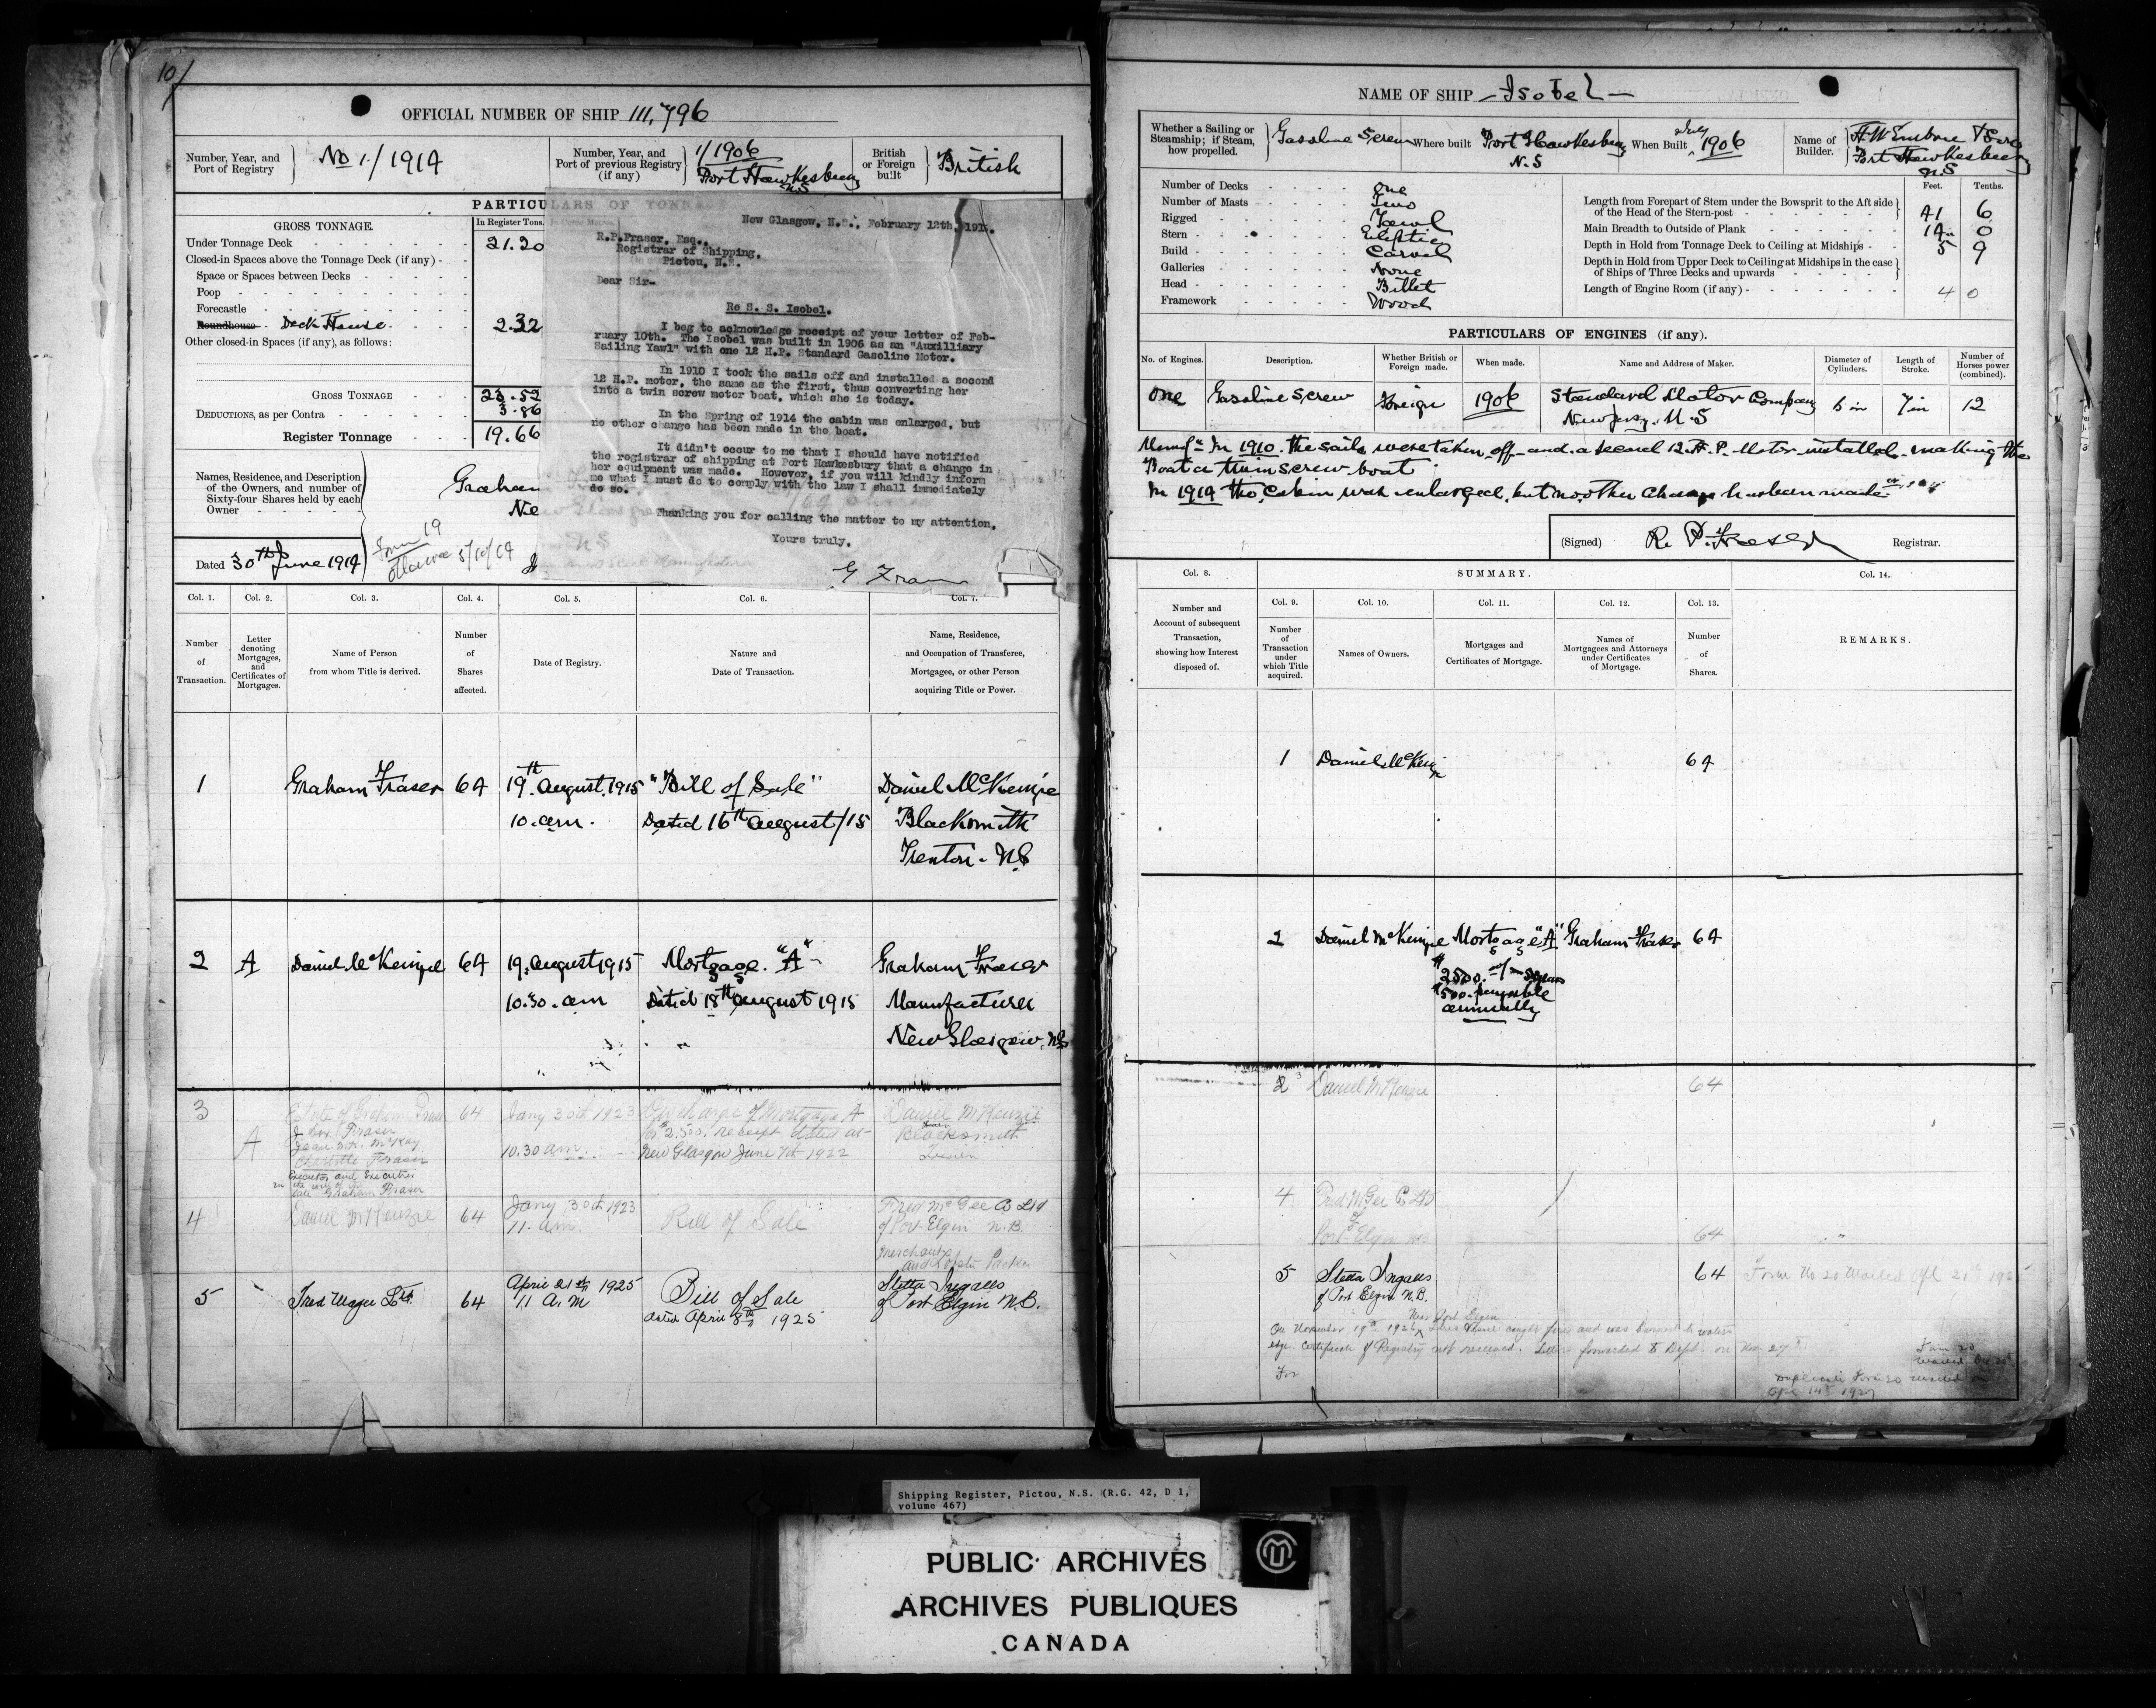 101
OFFICIAL NUMBER OF SHIP 111,796
Number, Year, and Port of Registry } No 1/1914
Number, Year, and Port of previous Registry (if any) } 1/1906 Port Hawkesbury N.S
British or Foreign built } British
PARTICULARS OF TONN
GROSS TONNAGE.
In Register Tons.
Under Tonnage Deck 21.20
Closed-in Spaces above the Tonnage Deck (if any)
Space or Spaces between Decks
Poop
Forecastle
Roundhouse Deck House 2.32
Other closed-in Spaces (if any), as follows:
GROSS TONNAGE 23.52
DEDUCTIONS, as per Contra 3.86
Register Tonnage 19.66
Names, Residence, and Description of the Owners, and number of Sixty-four Shares held by each Owner
Graham
Ne
Dated 30th June 1914
Form 19
Ottawa 5/10/14
New Glasgow, N.S., February 12th, 191
R.P.Fraser, Esq.,
Registrar of Shipping,
Pictou, N.S.
Dear Sir-
Re S. S. Isobel.
I beg to acknowledge receipt of your letter of Feb-
ruary 10th. The Isobel was built in 1906 as an "Auxilliary
Sailing Yawl" with one 12 H.P. Standard Gasoline Motor.
In 1910 I took the sails off and installed a second
12 H.P. motor, the same as the first, thus converting her
into a twin screw motor boat, which she is today.
In the Spring of 1914 the cabin was enlarged, but
no other change has been made in the boat.
It didn't occur to me that I should have notified
the registrar of shipping at Port Hawkesbury that a change in
her equipment was made. However, if you will kindly inform
me what I must do to comply with the law I shall immediately
do so.
Thanking you for calling the matter to my attention.
Yours truly,
G Fraser
Col. 1. Col. 2. Col. 3. Col. 4. Col. 5. Col. 6. Col. 7.
Number of Transaction.
Letter denoting Mortgages, and Certificates of Mortgages.
Name of Person from whom Title is derived.
Number of Shares affected.
Date of Registry.
Nature and Date of Transaction.
Name, Residence, and Occupation of Transferee, Mortgagee, or other Person acquiring Title or Power.
1 Graham Fraser 64 19th August, 1915 "Bill of Sale" Daniel McKenzie
10. am. Dated 16th August/15 Blacksmith
Trenton - NS
2 A Daniel McKenzie 64 19. August 1915 Mortgage. "A" Graham Fraser
10.30. am Dated 18th August 1915 Manufacturer
New Glasgow. NS
3 Estate of Graham Fraser 64 Jany 30th 1923 Discharge of Mortgage A Daniel McKenzie
A J Fraser
Jean McKay
Charlotte Fraser
10.30 am. for $2,500. receipt dated at Blacksmith
New Glasgow June 7th 1922
Executor and Executrix
in the will of the
late Graham Fraser
4 Daniel McKenzie 64 Jany 30th 1923 Bill of Sale Fred McGee Co Ltd
11. am. of Port Elgin N.B.
Merchants
and Lobster Packer
5 Fred Magee Ltd. 64 April 21st 1925 Bill of Sale Stetta Ingalls
11 A.M dated April 8th 1925 of Port Elgin N.B.
NAME OF SHIP - Isobel -
Whether a Sailing or Steamship; if Steam, how propelled. } Gasoline Screw
Where built Port Hawkesbury N.S
When Built July 1906
Name of Builder. } H.W Embree & Sons Port Hawkesbury N.S
Number of Decks one
Number of Masts Two
Rigged Yawl
Stern Eliptic
Build Carvel
Galleries None
Head Billet
Framework Wood
Feet. Tenths.
Length from Forepart of Stem under the Bowsprit to the Aft side of the Head of the Stern-post 41 6
Main Breadth to Outside of Plank 14 0
Depth in Hold from Tonnage Deck to Ceiling at Midships 5 9
Depth in Hold from Upper Deck to Ceiling at Midships in the case of Ships of Three Decks and upwards
Length of Engine Room (if any) 4 0
PARTICULARS OF ENGINES (if any).
No. of Engines. Description. Whether British or Foreign made. When made. Name and Address of Maker. Diameter of Cylinders. Length of Stroke. Number of Horses power (combined).
One Gasoline Screw Foreign 1906 Standard Motor Company 6 in 7 in 12
New Jersy. U.S
In 1910. the sails were taken off and a second 12 H.P. Motor installed making the
Boat a twin screw boat
In 1914 the cabin was enlarged, but no other change has been made
(Signed) R. P. Fraser Registrar.
Col. 8. SUMMARY. Col. 14.
Col. 9. Col. 10. Col. 11. Col. 12. Col. 13.
Number and Account of subsequent Transaction, showing how Interest disposed of.
Number of Transaction under which Title acquired.
Names of Owners.
Mortgages and Certificates of Mortgage.
Names of Mortgagees and Attorneys under Certificates of Mortgage.
Number of Shares.
REMARKS.
1 Daniel McKenzie 64
2 Daniel McKenzie Mortgage "A" Graham Fraser 64
$2500. 5 years
$500. payable
annually
2 3 Daniel McKenzie 64
4 Fred McGee Co Ltd
of
Port Elgin NB. 64
5 Stetta Ingalls 64 Form No 20 Mailed Apl 21st 1925
of Port Elgin N.B.
near Port Elgin
On November 19th 1926 this vessel caught fire and was burned to waters
edge. Certificate of Registry not received. Letter forwarded to Dept. on Nov. 27th
For
Form 20
mailed
Duplicate Form 20 mailed on
Apr 14th 1927
Shipping Register, Pictou, N.S. (R.G. 42, D 1,
volume 467)
PUBLIC ARCHIVES
ARCHIVES PUBLIQUES
CANADA